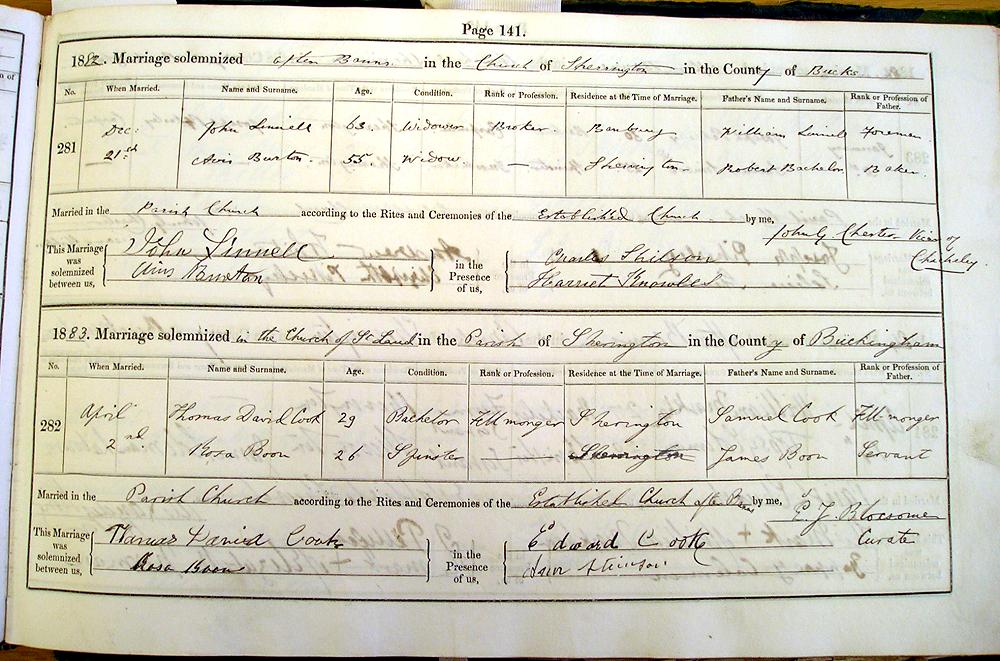 Page 141.
1882. Marriage solemnized after Banns in the Church of Sherrington in the County of Bucks
No. When Married. Name and Surname. Age. Condition. Rank or Profession. Residence at the Time of Marriage. Father's Name and Surname. Rank or Profession of Father.
281 Dec: John Linnell 63. Widower Broker. Banbury William Linnell Foreman
21st Avis Burton. 55. Widow — Sherrington Robert Bachelor Baker.
Married in the Parish Church according to the Rites and Ceremonies of the Established Church by me, John G Chester Vicar of
Chicheley.
This Marriage was solemnized between us, John Linnell in the Presence of us, Charles
Avis Harriet Knowles
1883. Marriage solemnized in the Church of St Laud in the Parish of Sherington in the County of Buckingham
No. When Married. Name and Surname. Age. Condition. Rank or Profession. Residence at the Time of Marriage. Father's Name and Surname. Rank or Profession of Father.
282 April Thomas David Cook 29 Bachelor Fellmonger Sherington Samuel Cook Fellmonger
2nd Rosa Boon 26 Spinster — Sherrington James Boon Servant
Married in the Parish Church according to the Rites and Ceremonies of the Established Church of by me, E. J. Blossome
Curate
This Marriage was solemnized between us, Thomas David Cook in the Presence of us, Edward Cook
Rosa Boon